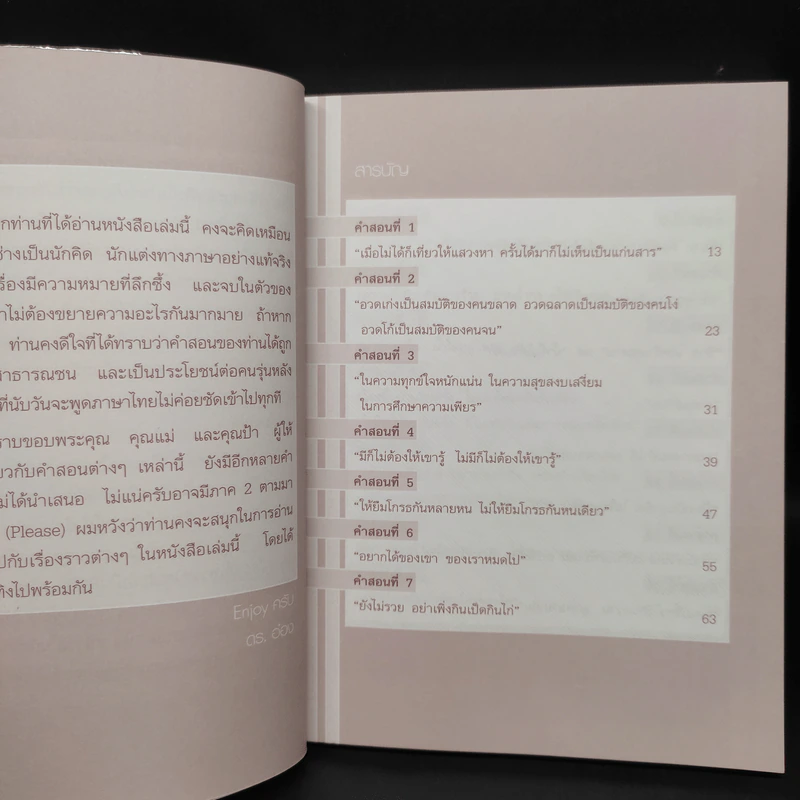 กท่านที่ได้อ่านหนังสือเล่มนี้ คงจะคิดเหมือน
ช่างเป็นนักคิด นักแต่งทางภาษาอย่างแท้จริง
เรื่องมีความหมายที่ลึกซึ้ง และจบในตัวของ
าไม่ต้องขยายความอะไรกันมากมาย ถ้าหาก
ท่านคงดีใจที่ได้ทราบว่าคำสอนของท่านได้ถูก
สาธารณชน และเป็นประโยชน์ต่อคนรุ่นหลัง
ที่นับวันจะพูดภาษาไทยไม่ค่อยชัดเข้าไปทุกที
ราบขอบพระคุณ คุณแม่ และคุณป้า ผู้ให้
ยวกับคำสอนต่างๆ เหล่านี้ ยังมีอีกหลายคำ
ม่ได้นำเสนอ ไม่แน่ครับอาจมีภาค 2 ตามมา
(Please) ผมหวังว่าท่านคงจะสนุกในการอ่าน
ปกับเรื่องราวต่างๆ ในหนังสือเล่มนี้ โดยได้
ทิงไปพร้อมกัน
Enjoy ครับ
ดร. อ๋อง
สารบัญ
คำสอนที่ 1
"เมื่อไม่ได้ก็เที่ยวให้แสวงหา ครั้นได้มาก็ไม่เห็นเป็นแก่นสาร" 13
คำสอนที่ 2
"อวดเก่งเป็นสมบัติของคนขลาด อวดฉลาดเป็นสมบัติของคนโง่
อวดโก้เป็นสมบัติของคนจน" 23
คำสอนที่ 3
"ในความทุกข์ใจหนักแน่น ในความสุขสงบเสงี่ยม
ในการศึกษาความเพียร" 31
คำสอนที่ 4
"มีก็ไม่ต้องให้เขารู้ ไม่มีก็ไม่ต้องให้เขารู้" 39
คำสอนที่ 5
"ให้ยืมโกรธกันหลายหน ไม่ให้ยืมโกรธกันหนเดียว" 47
คำสอนที่ 6
"อยากได้ของเขา ของเราหมดไป" 55
คำสอนที่ 7
"ยังไม่รวย อย่าเพิ่งกินเป็ดกินไก่" 63